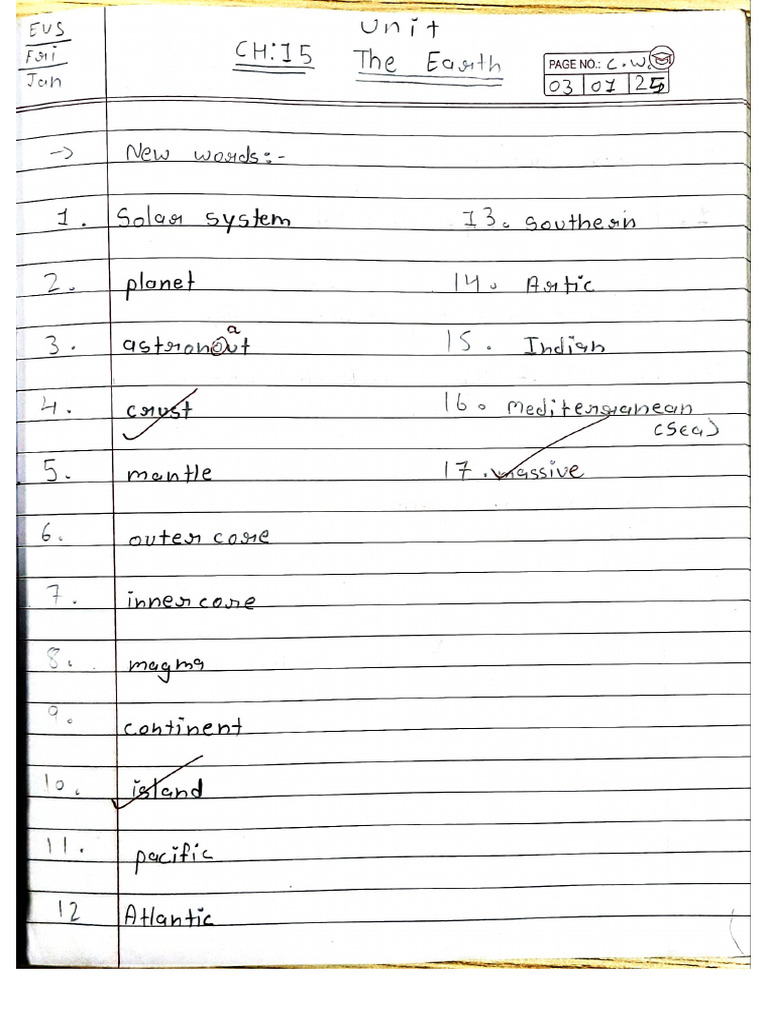 EVS
Fri
Jan
Unit
CH:15 The Earth
PAGE NO.: C.W.
03 01 25
-> New words:-
1. Solar system
2. planet
3. astronout
a
4. crust
5. mantle
6. outer core
7. inner core
8. magma
9. continent
10. island
11. pacific
12 Atlantic
13. Southern
14. Artic
15. Indian
16. Mediterranean
(Sea)
17. massive